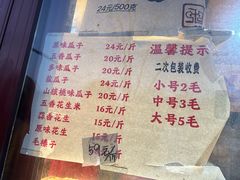 24元/500克
原味瓜子 24元/斤
五香瓜子 24元/斤
多味瓜子 24元/斤
盐瓜子 24元/斤
山核桃味瓜子 20元/斤
五香花生米 16元/斤
蒜香花生 16元/斤
原味花生 15元/斤
毛榛子 59元/斤
温馨提示
二次包装收费
小号2毛
中号3毛
大号5毛